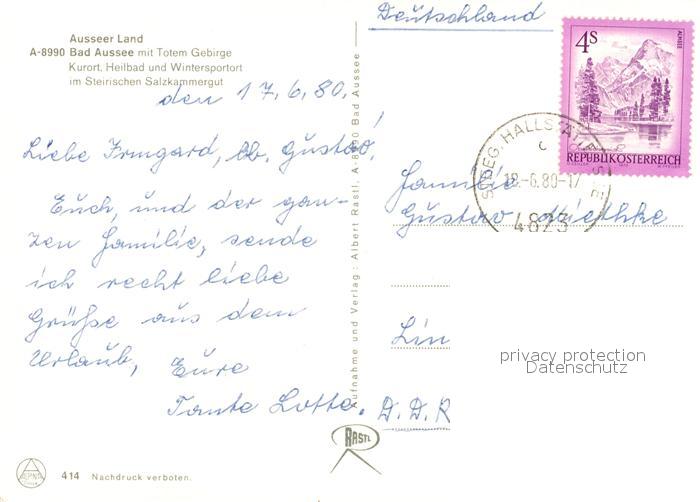 Ausseer Land
A-8990 Bad Aussee mit Totem Gebirge
Kurort, Heilbad und Wintersportort
im Steirischen Salzkammergut
den 17.6.80.
Liebe Irmgard, lb. Gustav!
Euch, und der gan-
zen Familie, sende
ich recht liebe
Grüße aus dem
Urlaub, Eure
Tante Lotte.
414 Nachdruck verboten.
Aufnahme und Verlag: Albert Rastl, A-8990 Bad Aussee
RASTL
Deutschland
4S
ALMSEE
REPUBLIK ÖSTERREICH
STEEG-HALLSTÄTTERSEE
18.-6.80-17
4823
Familie
Gustav Miethke
Lin
D.D.R
privacy protection
Datenschutz